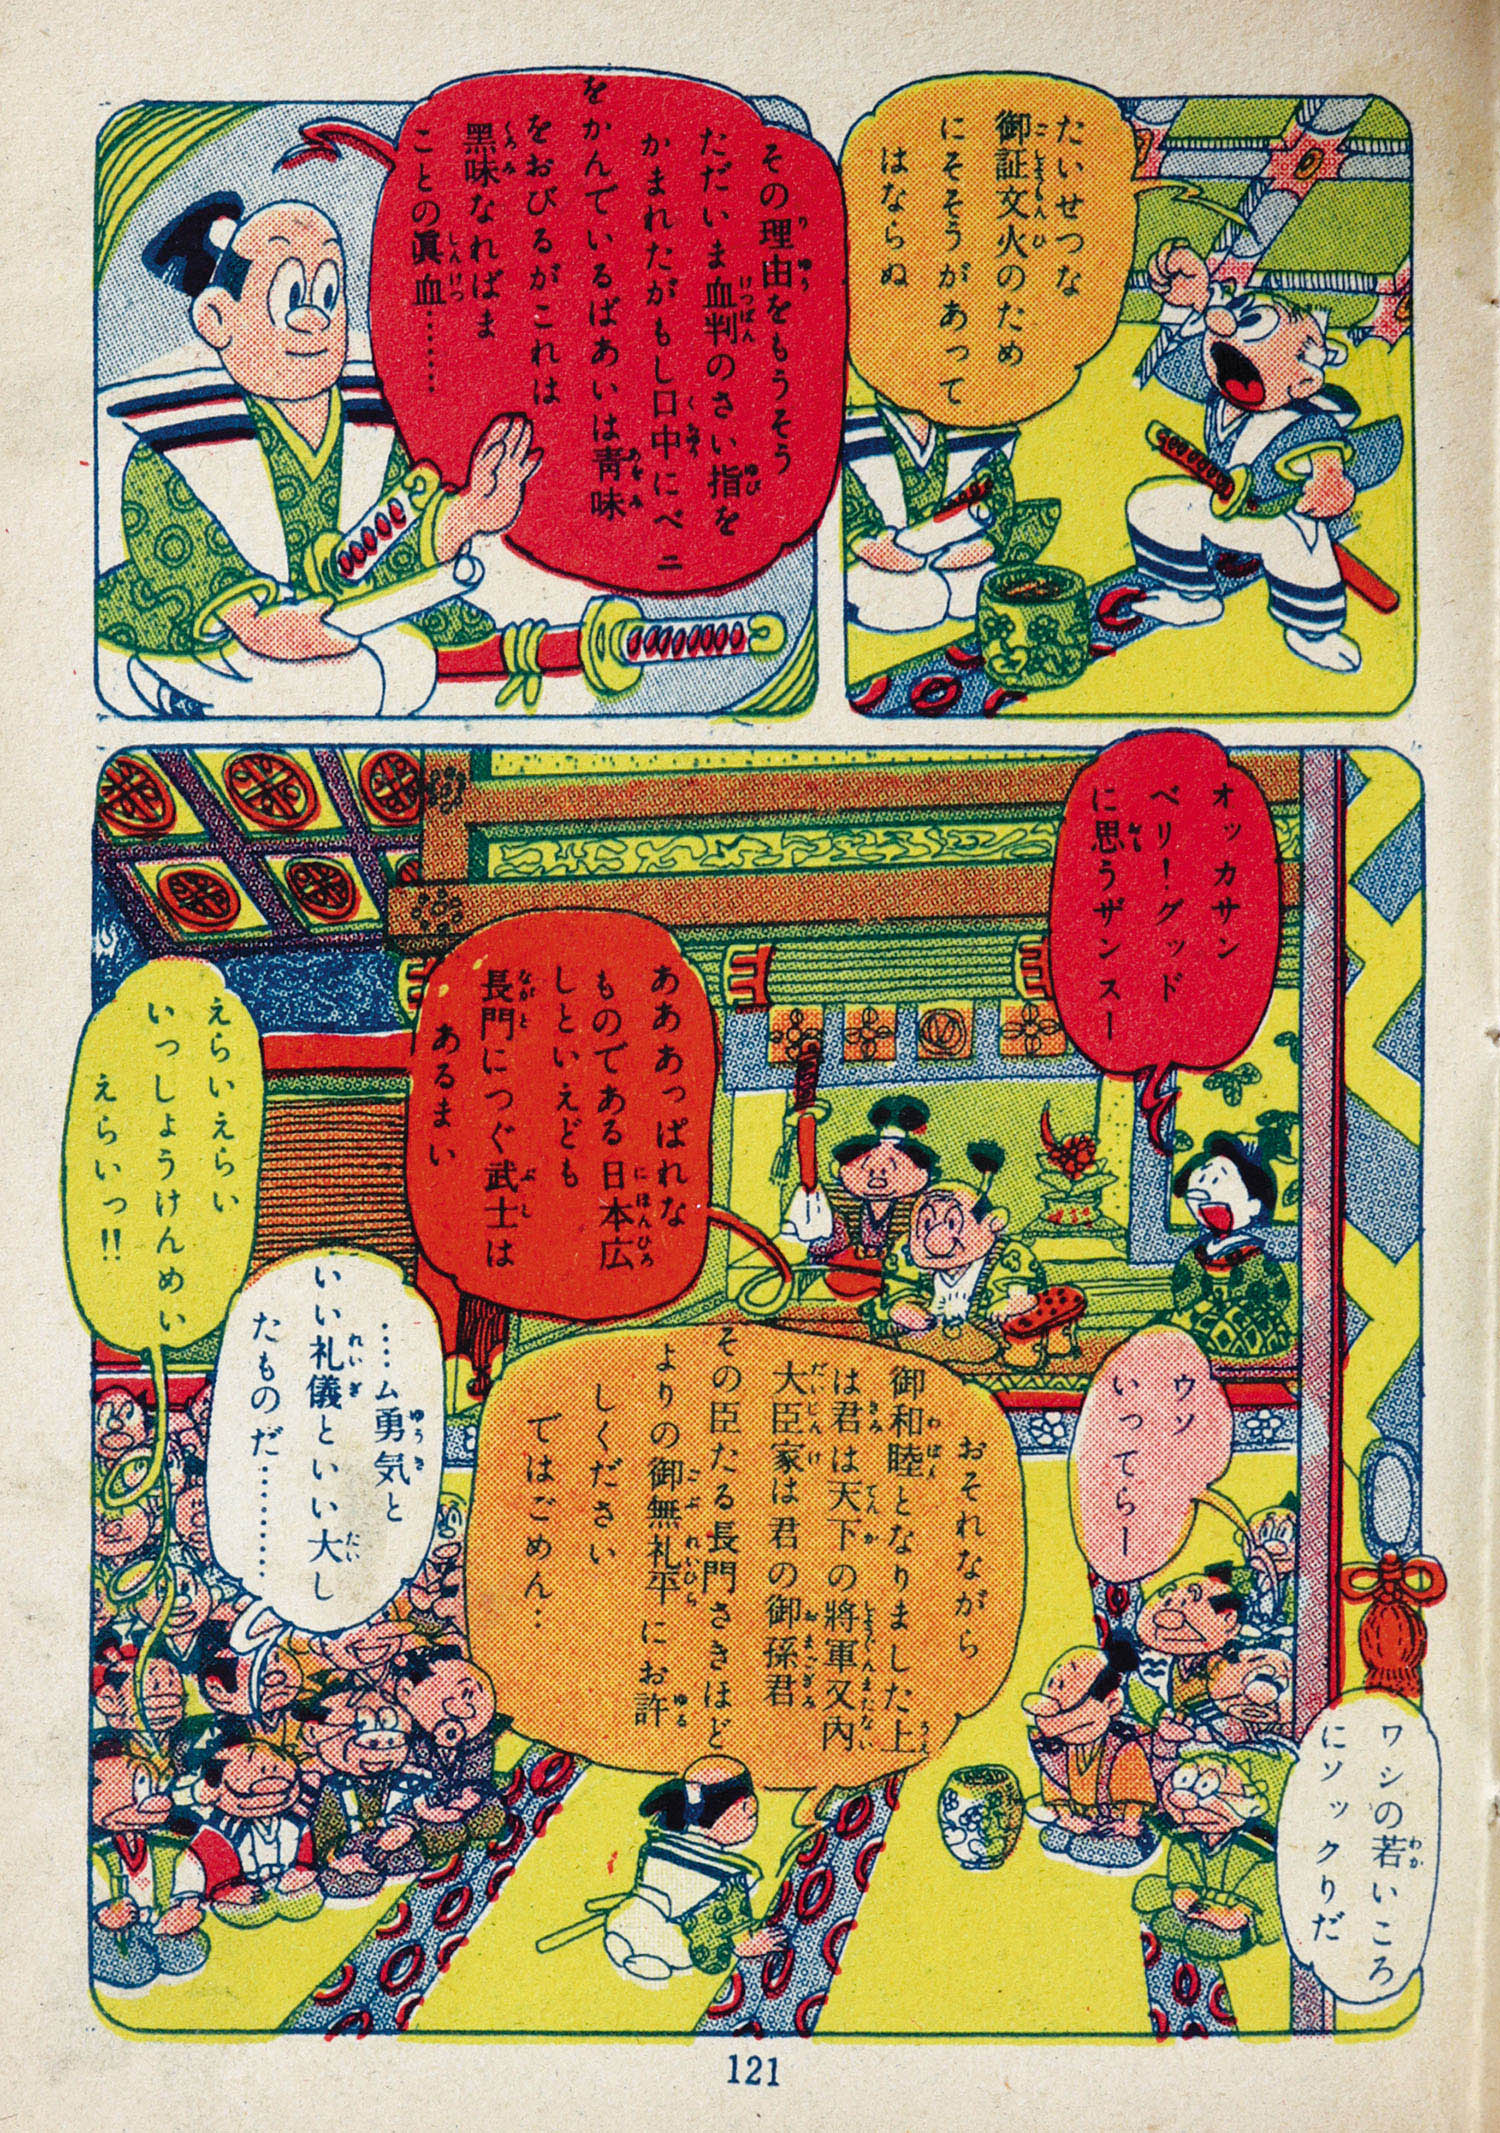 たいせつな
御証文火のため
にそそうがあって
はならぬ
その理由をもうそう
ただいま血判のさい指を
かまれたがもし口中にベニ
をかんでいるばあいは青味
をおびるがこれは
黒味なればま
ことの眞血………
オッカサン
ベリ！グッド
に思うザンスー
ああああっぱれな
ものである日本広
しといえども
長門につぐ武士は
あるまい
えらいえらい
いっしょうけんめい
えらいっ!!
……ム勇気と
いい礼儀といい大し
たものだ…………
おそれながら
御和睦となりました上
は君は天下の將軍又内
大臣家は君の御孫君
その臣たる長門さきほど
よりの御無礼平にお許
しください
ではごめん…
ウソ
いってらー
ワシの若いころ
にソックリだ
121